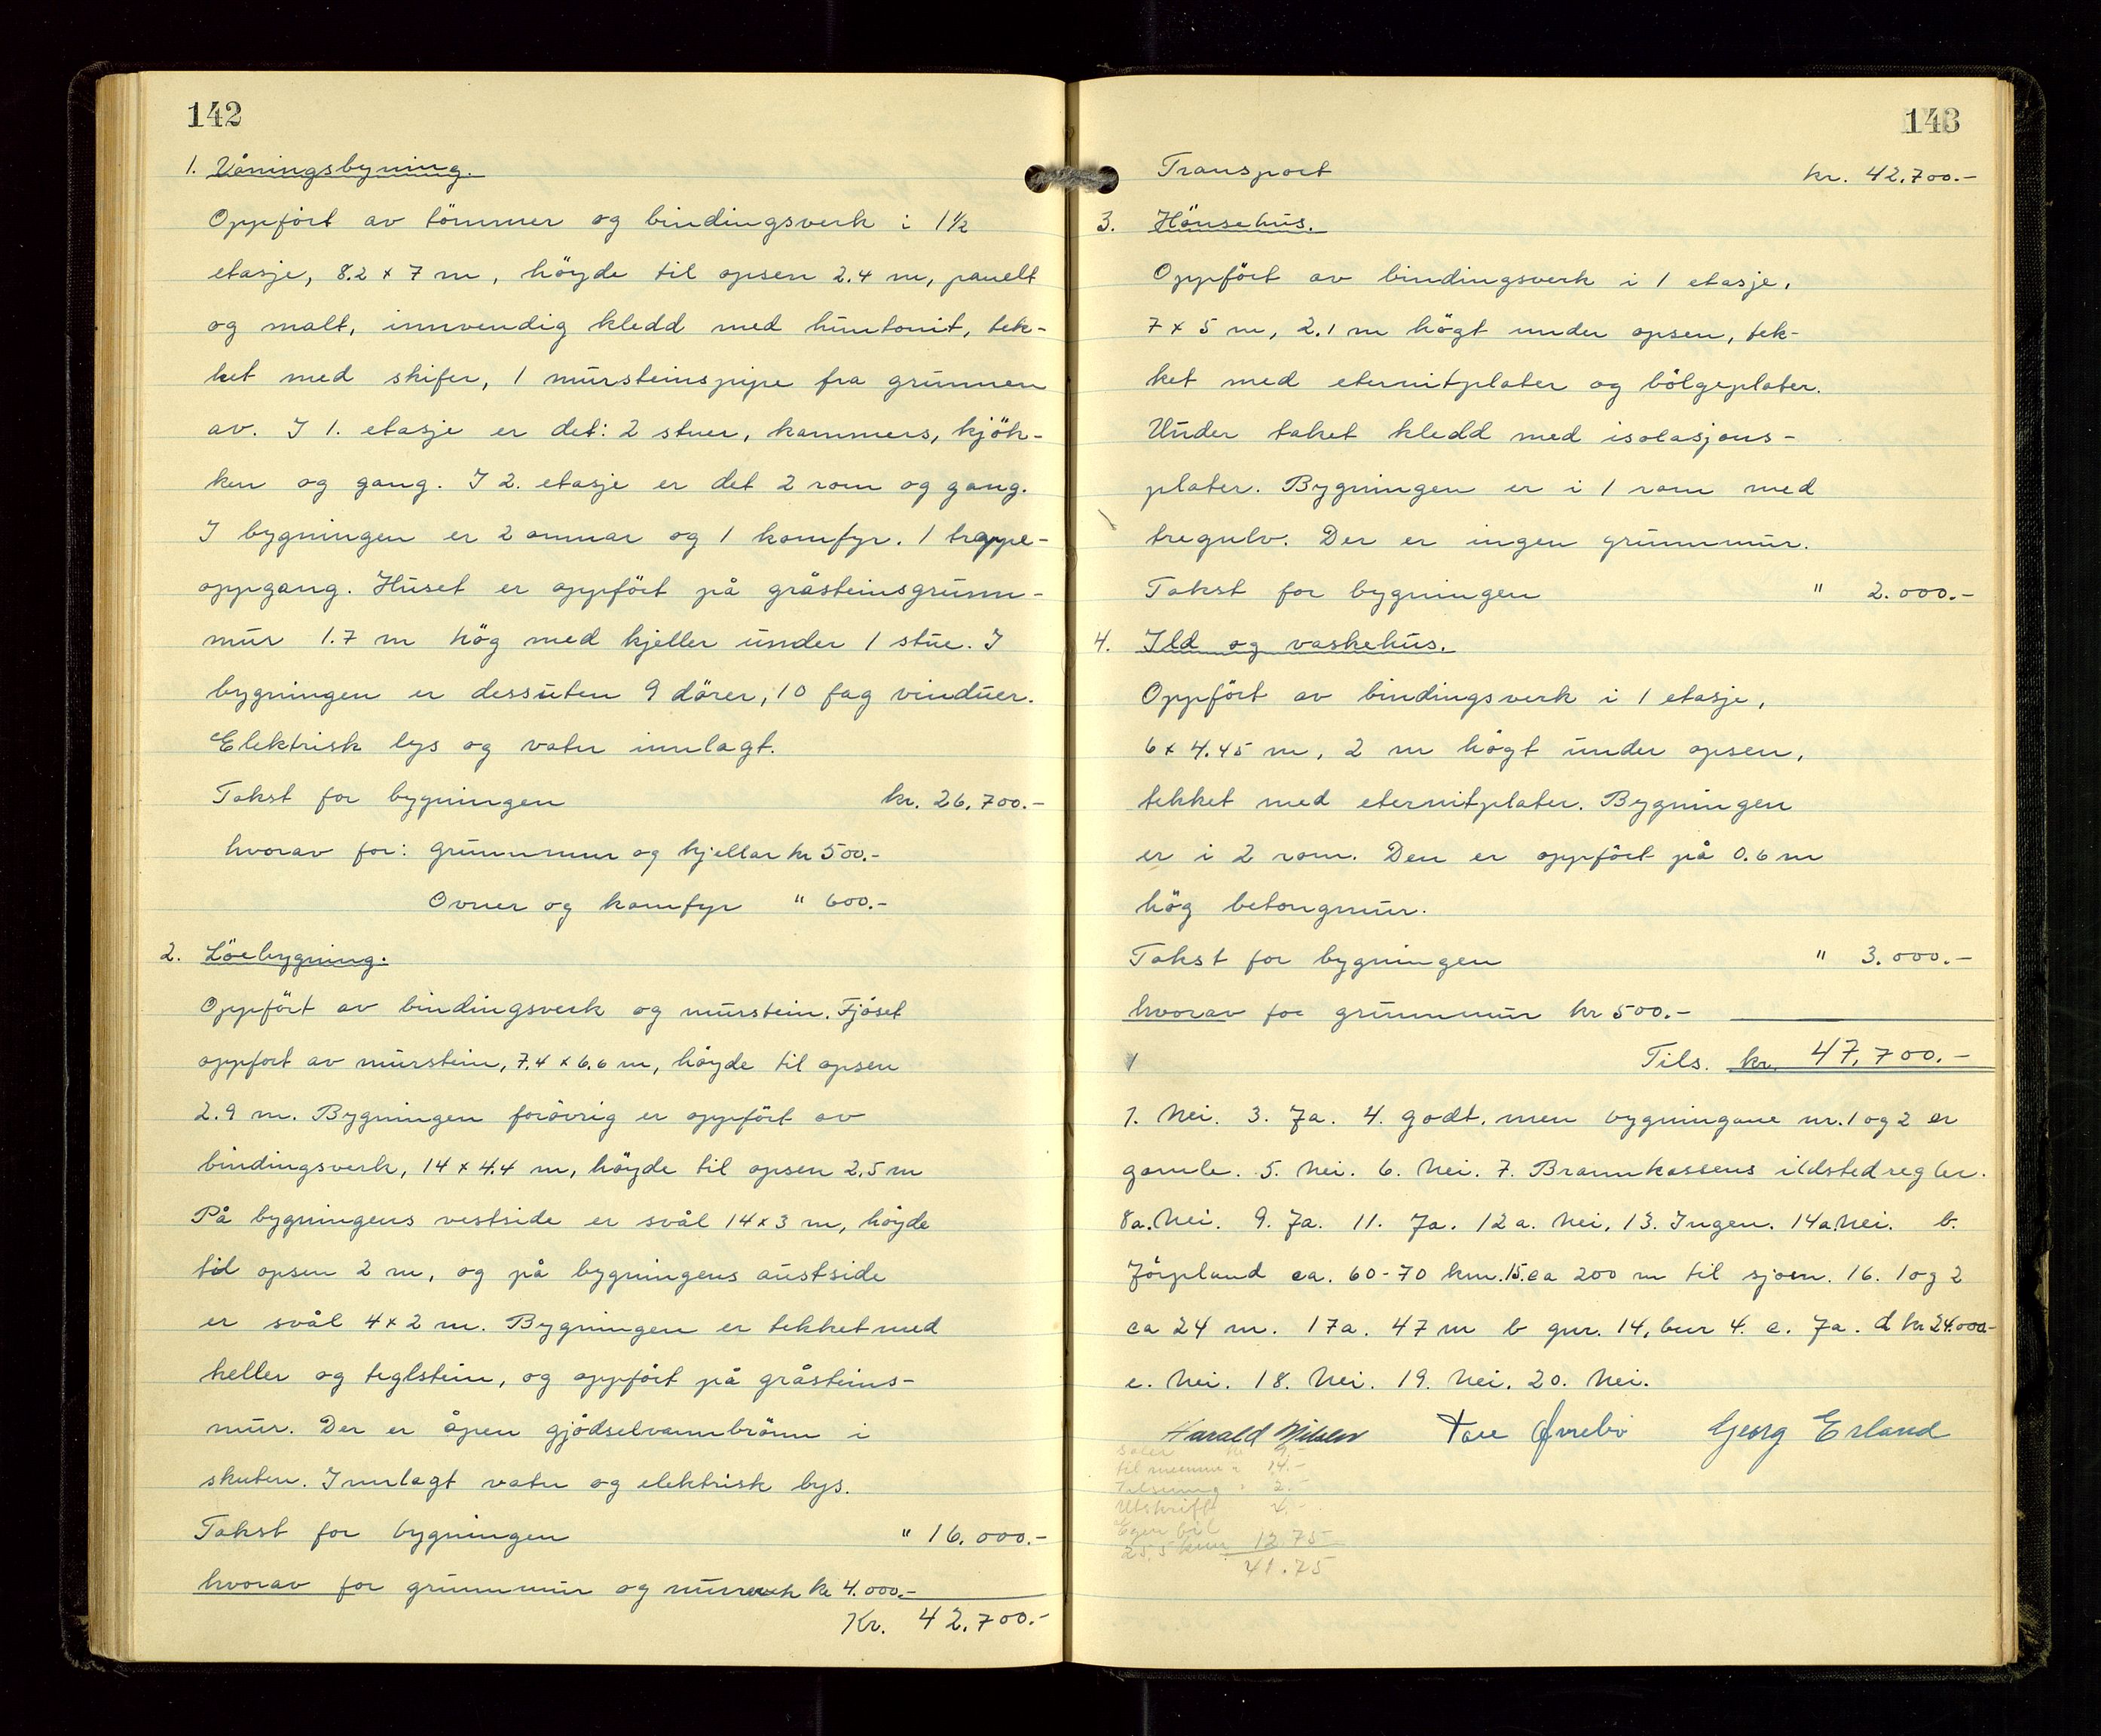 142
1. Våningsbygning.
Oppfört av tömmer og bindingsverk i 1½
etasje, 8.2 x 7 m, höyde til opsen 2.4 m, panelt
og malt, innvendig kledd med huntonit, tek-
ket med skifer, 1 mursteinspipe fra grunnen
av. I 1. etasje er det: 2 stuer, kammers, kjök-
ken og gang. I 2. etasje er det 2 rom og gang.
I bygningen er 2 omnar og 1 komfyr. 1 trappe-
oppgang. Huset er oppfört på gråsteinsgrunn-
mur 1.7 m hög med kjeller under 1 stue. I
bygningen er dessuten 9 dörer, 10 fag vinduer.
Elektrisk lys og vatn innlagt.
Takst for bygningen kr. 26.700.-
hvorav for: grunnmur og kjellar kr 500.-
Ovner og komfyr " 600.-
2. Löebygning.
Oppfört av bindingsverk og murstein. Fjöset
oppfort av murstein, 7.4 x 6.6 m, höyde til opsen
2.9 m. Bygningen forövrig er oppfört av
bindingsverk, 14 x 4.4 m, höyde til opsen 2,5 m
På bygningens vestside er svål 14 x 3 m, höyde
til opsen 2 m, og på bygningens austside
er svål 4 x 2 m. Bygningen er tekket med
heller og teglstein, og oppfört på gråsteins-
mur. Der er åpen gjödselvannbrönn i
skuten. Innlagt vatn og elektrisk lys.
Takst for bygningen " 16.000.-
hvorav for grunnmur og murverk kr 4.000.-
Kr. 42.700.-
143
Transport kr. 42.700.-
3. Hönsehus.
Oppfört av bindingsverk i 1 etasje,
7 x 5 m, 2.1 m högt under opsen, tek-
ket med eternitplater og bölgeplater.
Under taket kledd med isolasjons-
plater. Bygningen er i 1 rom med
tregulv. Der er ingen grunnmur.
Takst for bygningen " 2.000.-
4. Ild og vaskehus.
Oppfört av bindingsverk i 1 etasje,
6 x 4.45 m, 2 m högt under opsen,
tekket med eternitplater. Bygningen
er i 2 rom. Den er oppfört på 0.6 m
hög betongmur.
Takst for bygningen " 3.000.-
hvorav for grunnmur kr 500.-
Tils. kr. 47.700.-
1. Nei. 3. Ja. 4. godt, men bygningane nr. 1 og 2 er
gamle. 5. Nei. 6. Nei. 7. Brannkassens ildstedregler.
8a. Nei. 9. Ja. 11. Ja. 12a. Nei, 13. Ingen. 14a. Nei. b.
Jörpland ca. 60-70 km. 15. ca 200 m til sjoen. 16. 1 og 2
ca 24 m. 17a. 47 m b gnr. 14, bnr 4. c. Ja. d kr 24.000-
e. Nei. 18. Nei. 19. Nei. 20. Nei.
Harald Nilsen Tore Øvrebö Georg Erland
14.-
2.-
Utskrift
Egen bil
25,5 km 12.75
41.75